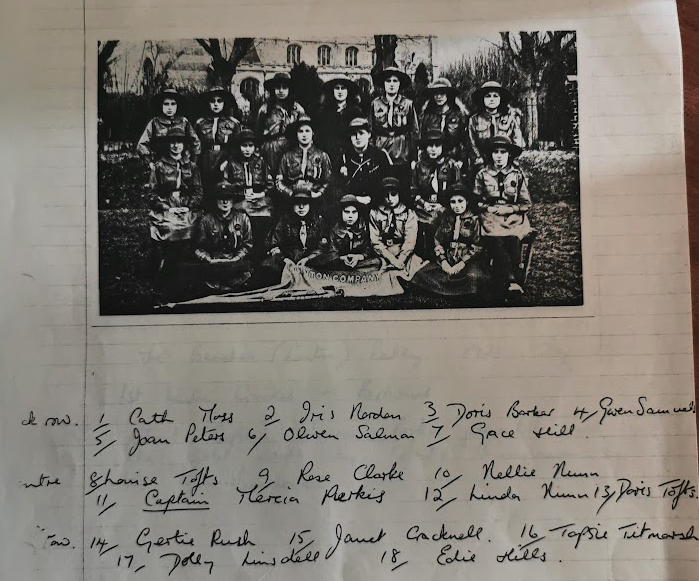 TON COMPANY
row. 1/ Cath Moss 2/ Iris Norden 3/ Doris Barker 4/ Gwen Samuels
5/ Joan Peters 6/ Olwen Salmon 7/ Grace Hill.
8/ Louise Tofts 9/ Rose Clarke 10/ Nellie Nunn
11/ Captain Mercia Perkis 12/ Linda Nunn 13/ Doris Tofts.
row. 14/ Gertie Rush 15/ Janet Cracknell. 16/ Topsie Titmarsh
17/ Dolly Linsdell 18/ Edie Hills.